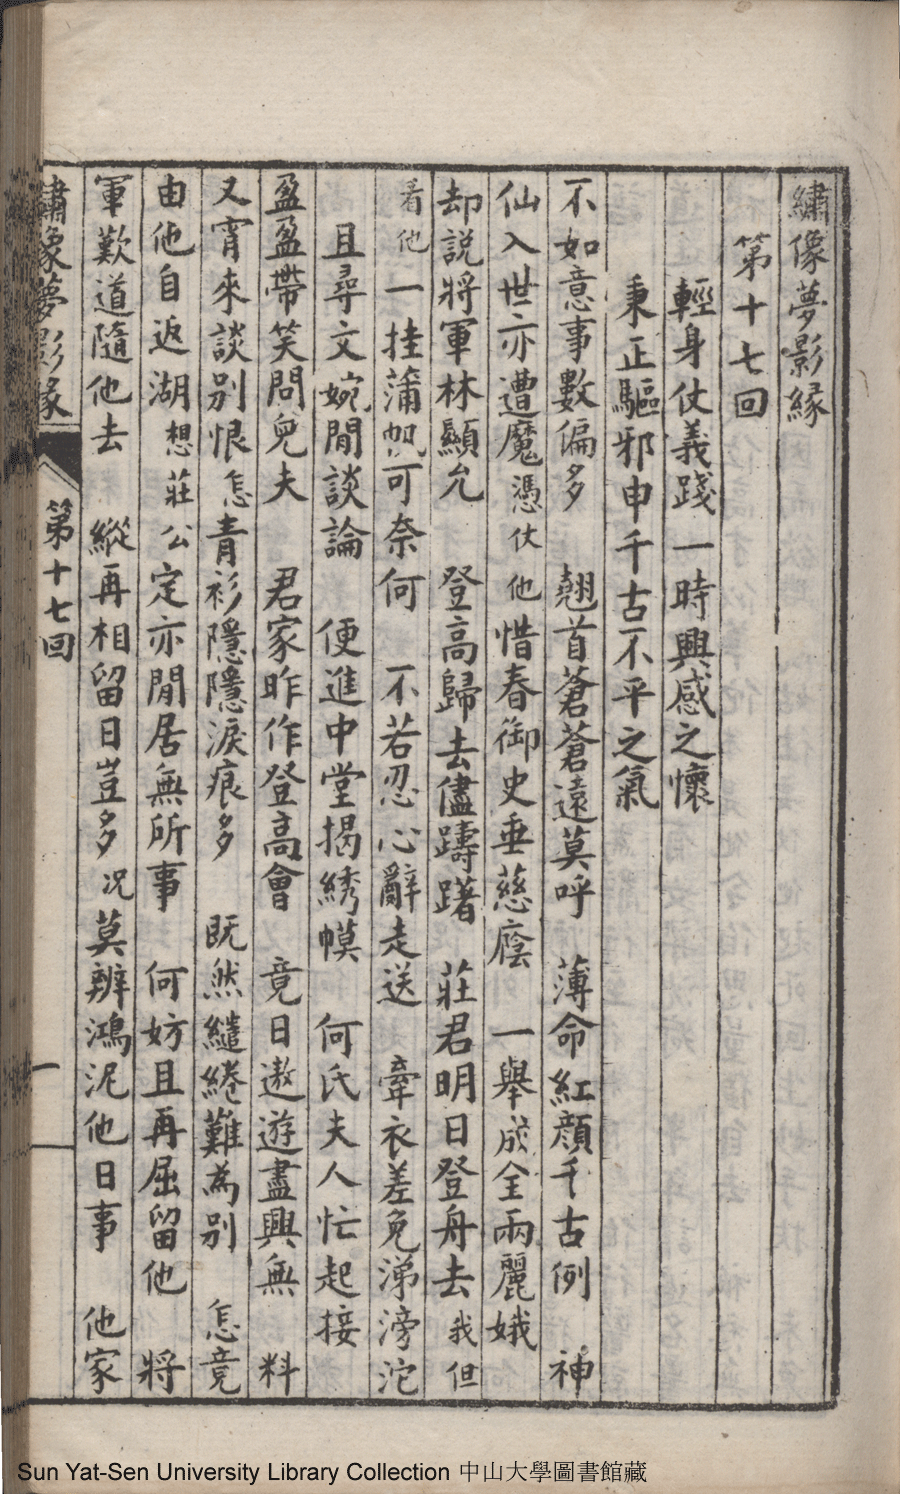 繡像夢影緣
第十七回
輕身仗義踐一時興感之懷
秉正驅邪申千古不平之氣
不如意事數偏多　翹首蒼蒼遠莫呼　薄命紅顏千古例　神
仙入世亦遭魔憑仗他惜春御史垂慈廕　一舉成全兩麗娥
却說將軍林顯允　登高歸去儘躊躇　莊君明日登舟去我但
看他一挂蒲帆可奈何　不若忍心辭走送　牽衣差免涕滂沱
且尋文婉閒談論　便進中堂揭綉幙　何氏夫人忙起接
盈盈帶笑問兒夫　君家昨作登高會　竟日遨遊盡興無　料
又宵來談別恨怎青衫隱隱淚痕多　既然繾綣難為別　怎竟
由他自返湖想莊公定亦閒居無所事　何妨且再屈留他　將
軍歎道隨他去　縱再相留日豈多况莫辨鴻泥他日事　他家
繡像夢影緣　第十七回　一
Sun Yat-Sen University Library Collection 中山大學圖書館藏